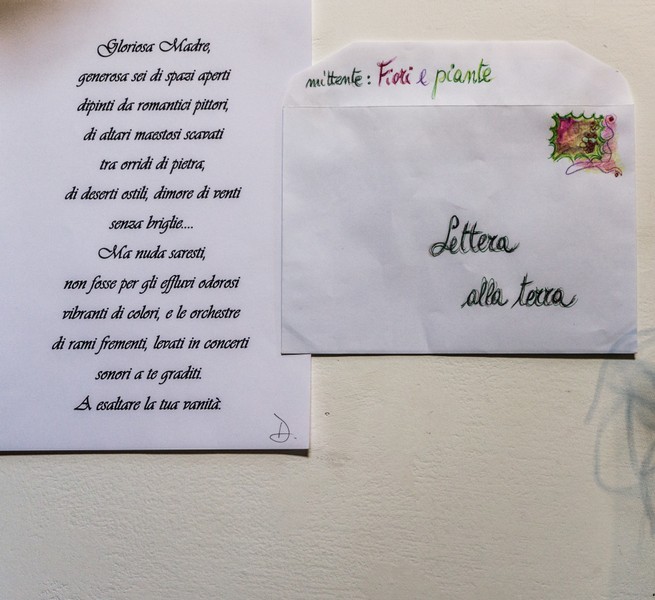 Gloriosa Madre,
generosa sei di spazi aperti
dipinti da romantici pittori,
di altari maestosi scavati
tra orridi di pietra,
di deserti ostili, dimore di venti
senza briglie....
Ma nuda saresti,
non fosse per gli effluvi odorosi
vibranti di colori, e le orchestre
di rami frementi, levati in concerti
sonori a te graditi.
A esaltare la tua vanità.
D.
mittente: Fiori e piante
Lettera
alla terra